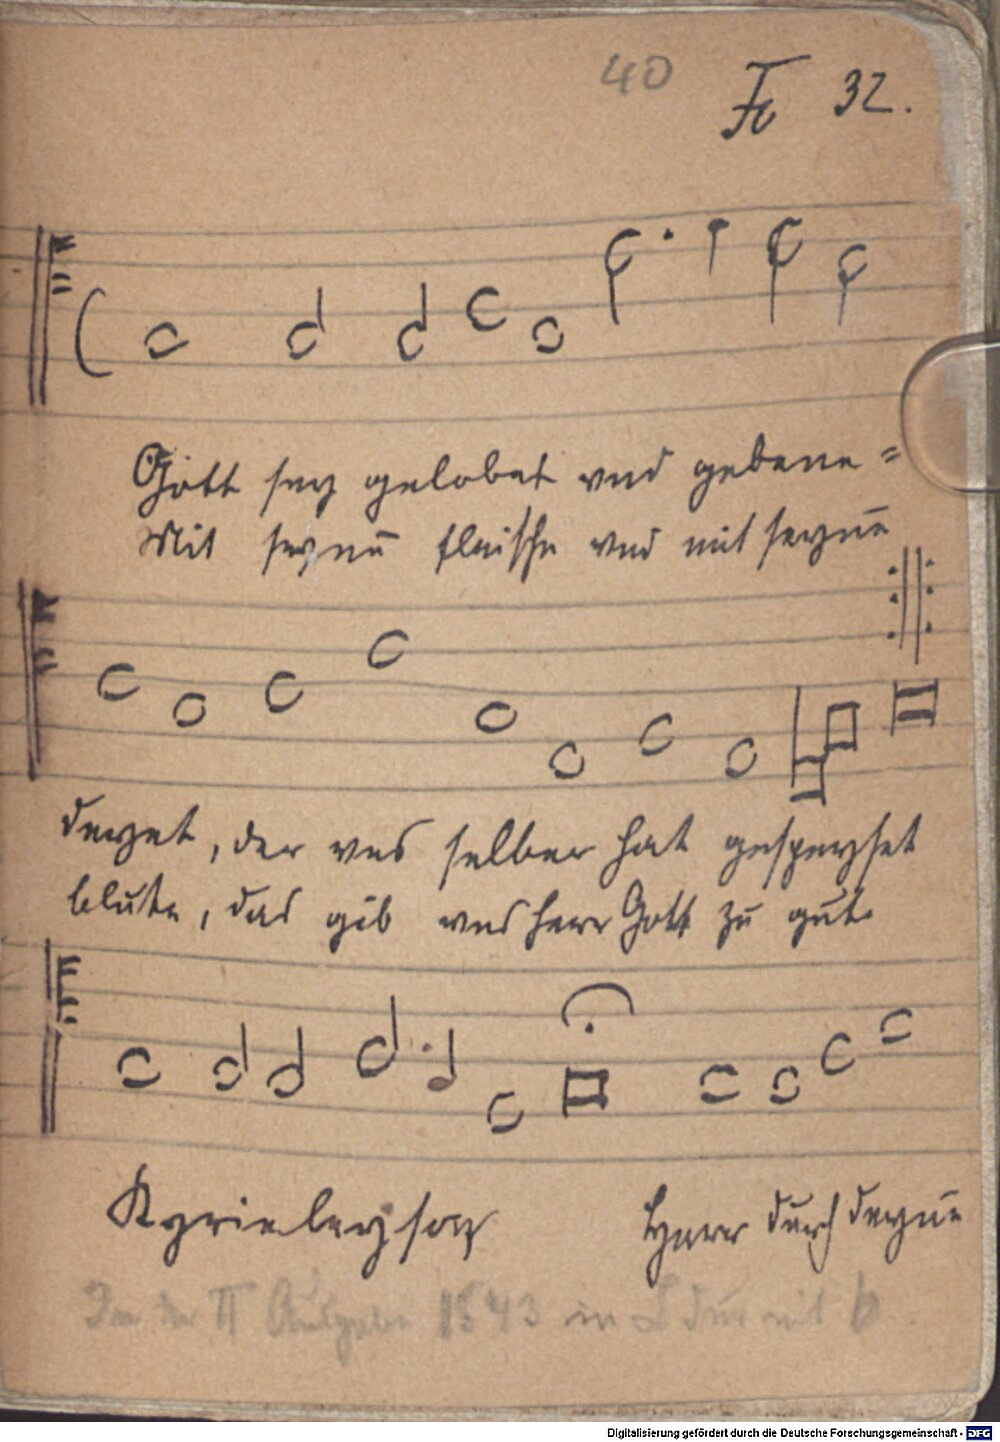 40 Fc 32.
Gott sey gelobet vnd gebene=
Mit seynē fleische vnd mit seynē
deyet, der vns selber hat gespeyset
blute, das gib vns herr Gott zu gute
Kyrieleyson Herr durch deynē
In der II Ausgabe 1543 in F dur mit b.
Digitalisierung gefördert durch die Deutsche Forschungsgemeinschaft - DFG